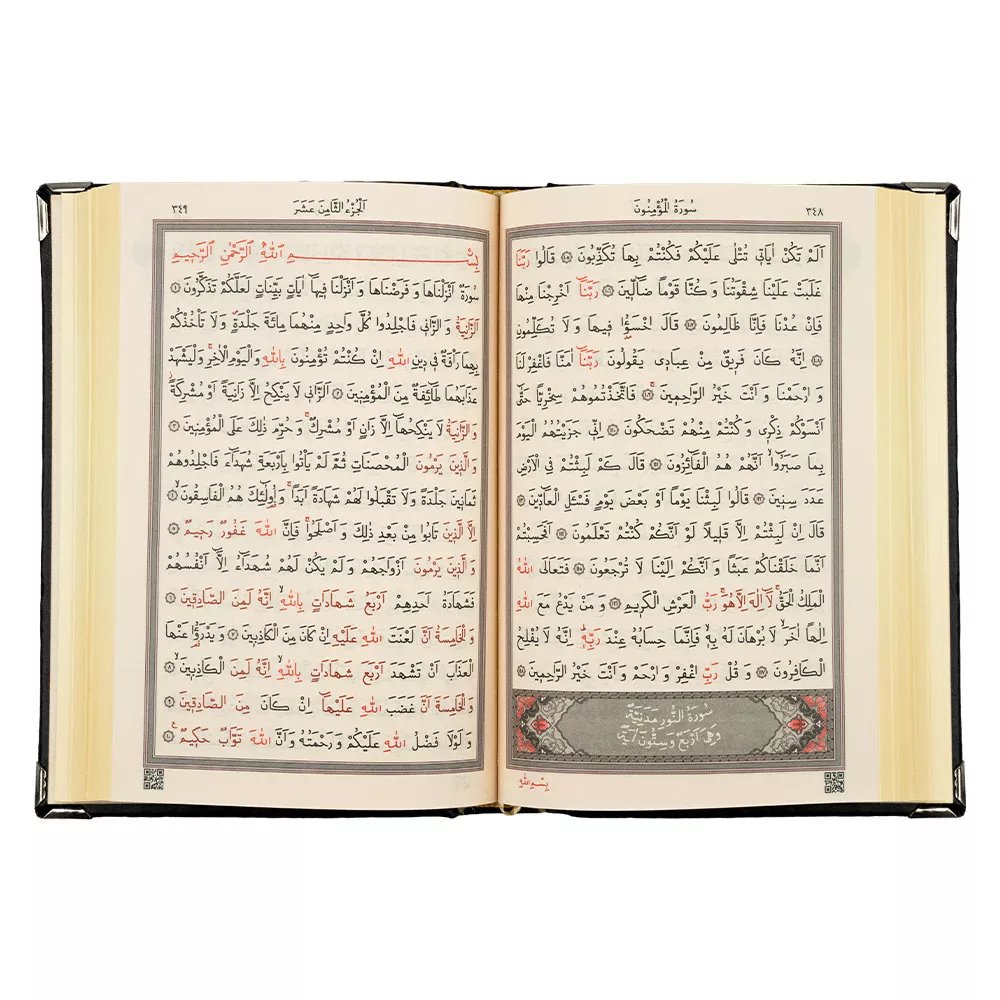 ٣٤٨
سُورَةُ الْمُؤْمِنُونَ
اَلَمْ تَكُنْ اٰيَاتٖي تُتْلٰى عَلَيْكُمْ فَكُنْتُمْ بِهَا تُكَذِّبُونَ ﴿١٠٥﴾ قَالُوا رَبَّنَا
غَلَبَتْ عَلَيْنَا شِقْوَتُنَا وَكُنَّا قَوْمًا ضَٓالّٖينَ ﴿١٠٦﴾ رَبَّنَٓا اَخْرِجْنَا مِنْهَا
فَاِنْ عُدْنَا فَاِنَّا ظَالِمُونَ ﴿١٠٧﴾ قَالَ اخْسَؤُ۫ا فٖيهَا وَلَا تُكَلِّمُونِ
﴿١٠٨﴾ اِنَّهُ كَانَ فَرٖيقٌ مِنْ عِبَادٖي يَقُولُونَ رَبَّنَٓا اٰمَنَّا فَاغْفِرْ لَنَا
وَارْحَمْنَا وَاَنْتَ خَيْرُ الرَّاحِمٖينَ ﴿١٠٩﴾ فَاتَّخَذْتُمُوهُمْ سِخْرِيًّا حَتّٰٓى
اَنْسَوْكُمْ ذِكْرٖي وَكُنْتُمْ مِنْهُمْ تَضْحَكُونَ ﴿١١٠﴾ اِنّٖي جَزَيْتُهُمُ الْيَوْمَ
بِمَا صَبَرُٓوا اَنَّهُمْ هُمُ الْفَٓائِزُونَ ﴿١١١﴾ قَالَ كَمْ لَبِثْتُمْ فِي الْاَرْضِ
عَدَدَ سِنٖينَ ﴿١١٢﴾ قَالُوا لَبِثْنَا يَوْمًا اَوْ بَعْضَ يَوْمٍ فَسْـَٔلِ الْعَٓادّٖينَ ﴿١١٣﴾
قَالَ اِنْ لَبِثْتُمْ اِلَّا قَلٖيلًا لَوْ اَنَّكُمْ كُنْتُمْ تَعْلَمُونَ ﴿١١٤﴾ اَفَحَسِبْتُمْ
اَنَّمَا خَلَقْنَاكُمْ عَبَثًا وَاَنَّكُمْ اِلَيْنَا لَا تُرْجَعُونَ ﴿١١٥﴾ فَتَعَالَى اللّٰهُ
الْمَلِكُ الْحَقُّۚ لَٓا اِلٰهَ اِلَّا هُوَۚ رَبُّ الْعَرْشِ الْكَرٖيمِ ﴿١١٦﴾ وَمَنْ يَدْعُ مَعَ اللّٰهِ
اِلٰهًا اٰخَرَۙ لَا بُرْهَانَ لَهُ بِهٖۙ فَاِنَّمَا حِسَابُهُ عِنْدَ رَبِّهٖؕ اِنَّهُ لَا يُفْلِحُ
الْكَافِرُونَ ﴿١١٧﴾ وَقُلْ رَبِّ اغْفِرْ وَارْحَمْ وَاَنْتَ خَيْرُ الرَّاحِمٖينَ ﴿١١٨﴾
سُورَةُ النُّورِ مَدَنِيَّةٌ
وَهِيَ اَرْبَعٌ وَسِتُّونَ اٰيَةً
بِسْمِ اللّٰهِ
اَلْجُزْءُ الثَّامِنَ عَشَرَ
٣٤٩
بِسْمِ اللّٰهِ الرَّحْمٰنِ الرَّحٖيمِ
سُورَةٌ اَنْزَلْنَاهَا وَفَرَضْنَاهَا وَاَنْزَلْنَا فٖيهَٓا اٰيَاتٍ بَيِّنَاتٍ لَعَلَّكُمْ تَذَكَّرُونَ ﴿١﴾
اَلزَّانِيَةُ وَالزَّانٖي فَاجْلِدُوا كُلَّ وَاحِدٍ مِنْهُمَا مِائَةَ جَلْدَةٍۖ وَلَا تَأْخُذْكُمْ
بِهِمَا رَأْفَةٌ فٖي دٖينِ اللّٰهِ اِنْ كُنْتُمْ تُؤْمِنُونَ بِاللّٰهِ وَالْيَوْمِ الْاٰخِرِۚ وَلْيَشْهَدْ
عَذَابَهُمَا طَٓائِفَةٌ مِنَ الْمُؤْمِنٖينَ ﴿٢﴾ اَلزَّانٖي لَا يَنْكِحُ اِلَّا زَانِيَةً اَوْ مُشْرِكَةًۘ
وَالزَّانِيَةُ لَا يَنْكِحُهَٓا اِلَّا زَانٍ اَوْ مُشْرِكٌۚ وَحُرِّمَ ذٰلِكَ عَلَى الْمُؤْمِنٖينَ ﴿٣﴾
وَالَّذٖينَ يَرْمُونَ الْمُحْصَنَاتِ ثُمَّ لَمْ يَأْتُوا بِاَرْبَعَةِ شُهَدَٓاءَ فَاجْلِدُوهُمْ
ثَمَانٖينَ جَلْدَةً وَلَا تَقْبَلُوا لَهُمْ شَهَادَةً اَبَدًاۚ وَاُو۬لٰٓئِكَ هُمُ الْفَاسِقُونَۙ ﴿٤﴾
اِلَّا الَّذٖينَ تَابُوا مِنْ بَعْدِ ذٰلِكَ وَاَصْلَحُواۚ فَاِنَّ اللّٰهَ غَفُورٌ رَحٖيمٌ ﴿٥﴾
وَالَّذٖينَ يَرْمُونَ اَزْوَاجَهُمْ وَلَمْ يَكُنْ لَهُمْ شُهَدَٓاءُ اِلَّٓا اَنْفُسُهُمْ
فَشَهَادَةُ اَحَدِهِمْ اَرْبَعُ شَهَادَاتٍ بِاللّٰهِۙ اِنَّهُ لَمِنَ الصَّادِقٖينَ ﴿٦﴾
وَالْخَامِسَةُ اَنَّ لَعْنَتَ اللّٰهِ عَلَيْهِ اِنْ كَانَ مِنَ الْكَاذِبٖينَ ﴿٧﴾ وَيَدْرَؤُ۬ا عَنْهَا
الْعَذَابَ اَنْ تَشْهَدَ اَرْبَعَ شَهَادَاتٍ بِاللّٰهِۙ اِنَّهُ لَمِنَ الْكَاذِبٖينَۙ ﴿٨﴾
وَالْخَامِسَةَ اَنَّ غَضَبَ اللّٰهِ عَلَيْهَٓا اِنْ كَانَ مِنَ الصَّادِقٖينَ ﴿٩﴾
وَلَوْلَا فَضْلُ اللّٰهِ عَلَيْكُمْ وَرَحْمَتُهُ وَاَنَّ اللّٰهَ تَوَّابٌ حَكٖيمٌ۟ ﴿١٠﴾